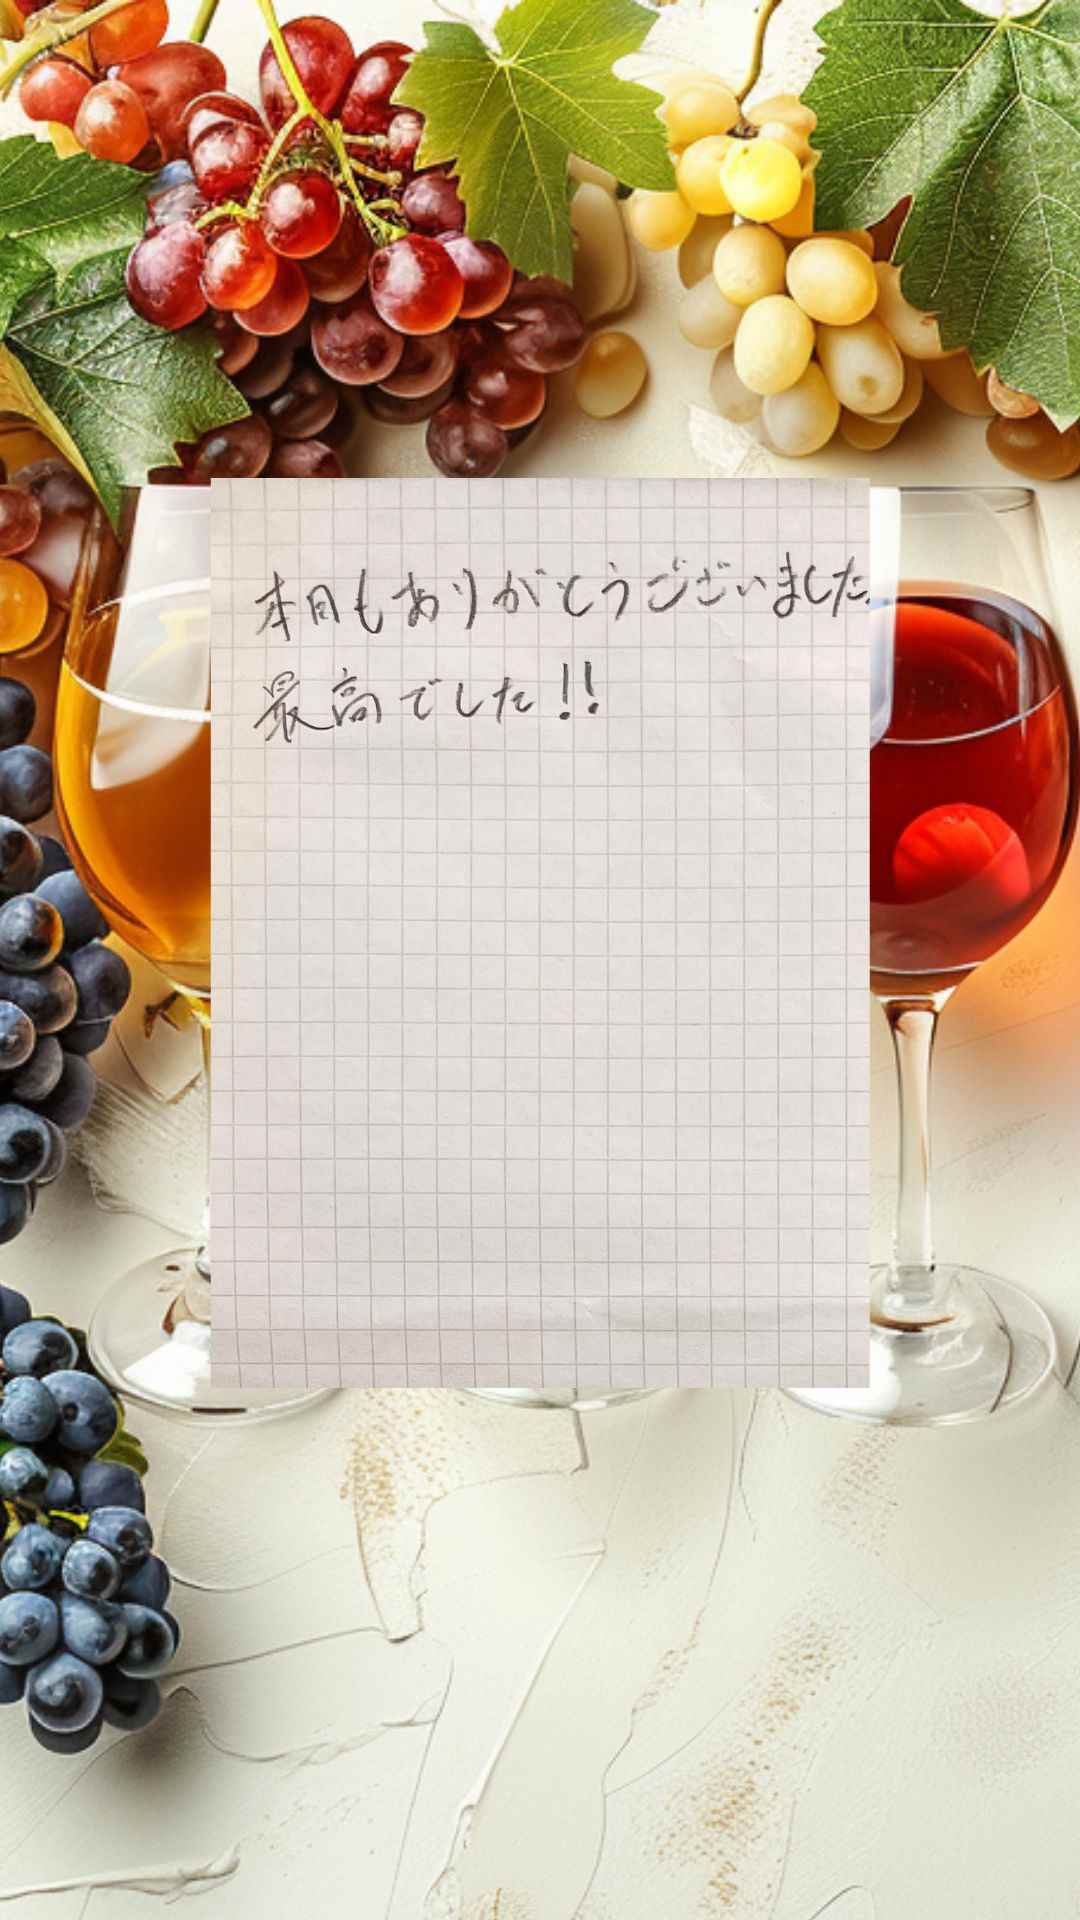 本日もありがとうございました。
最高でした!!